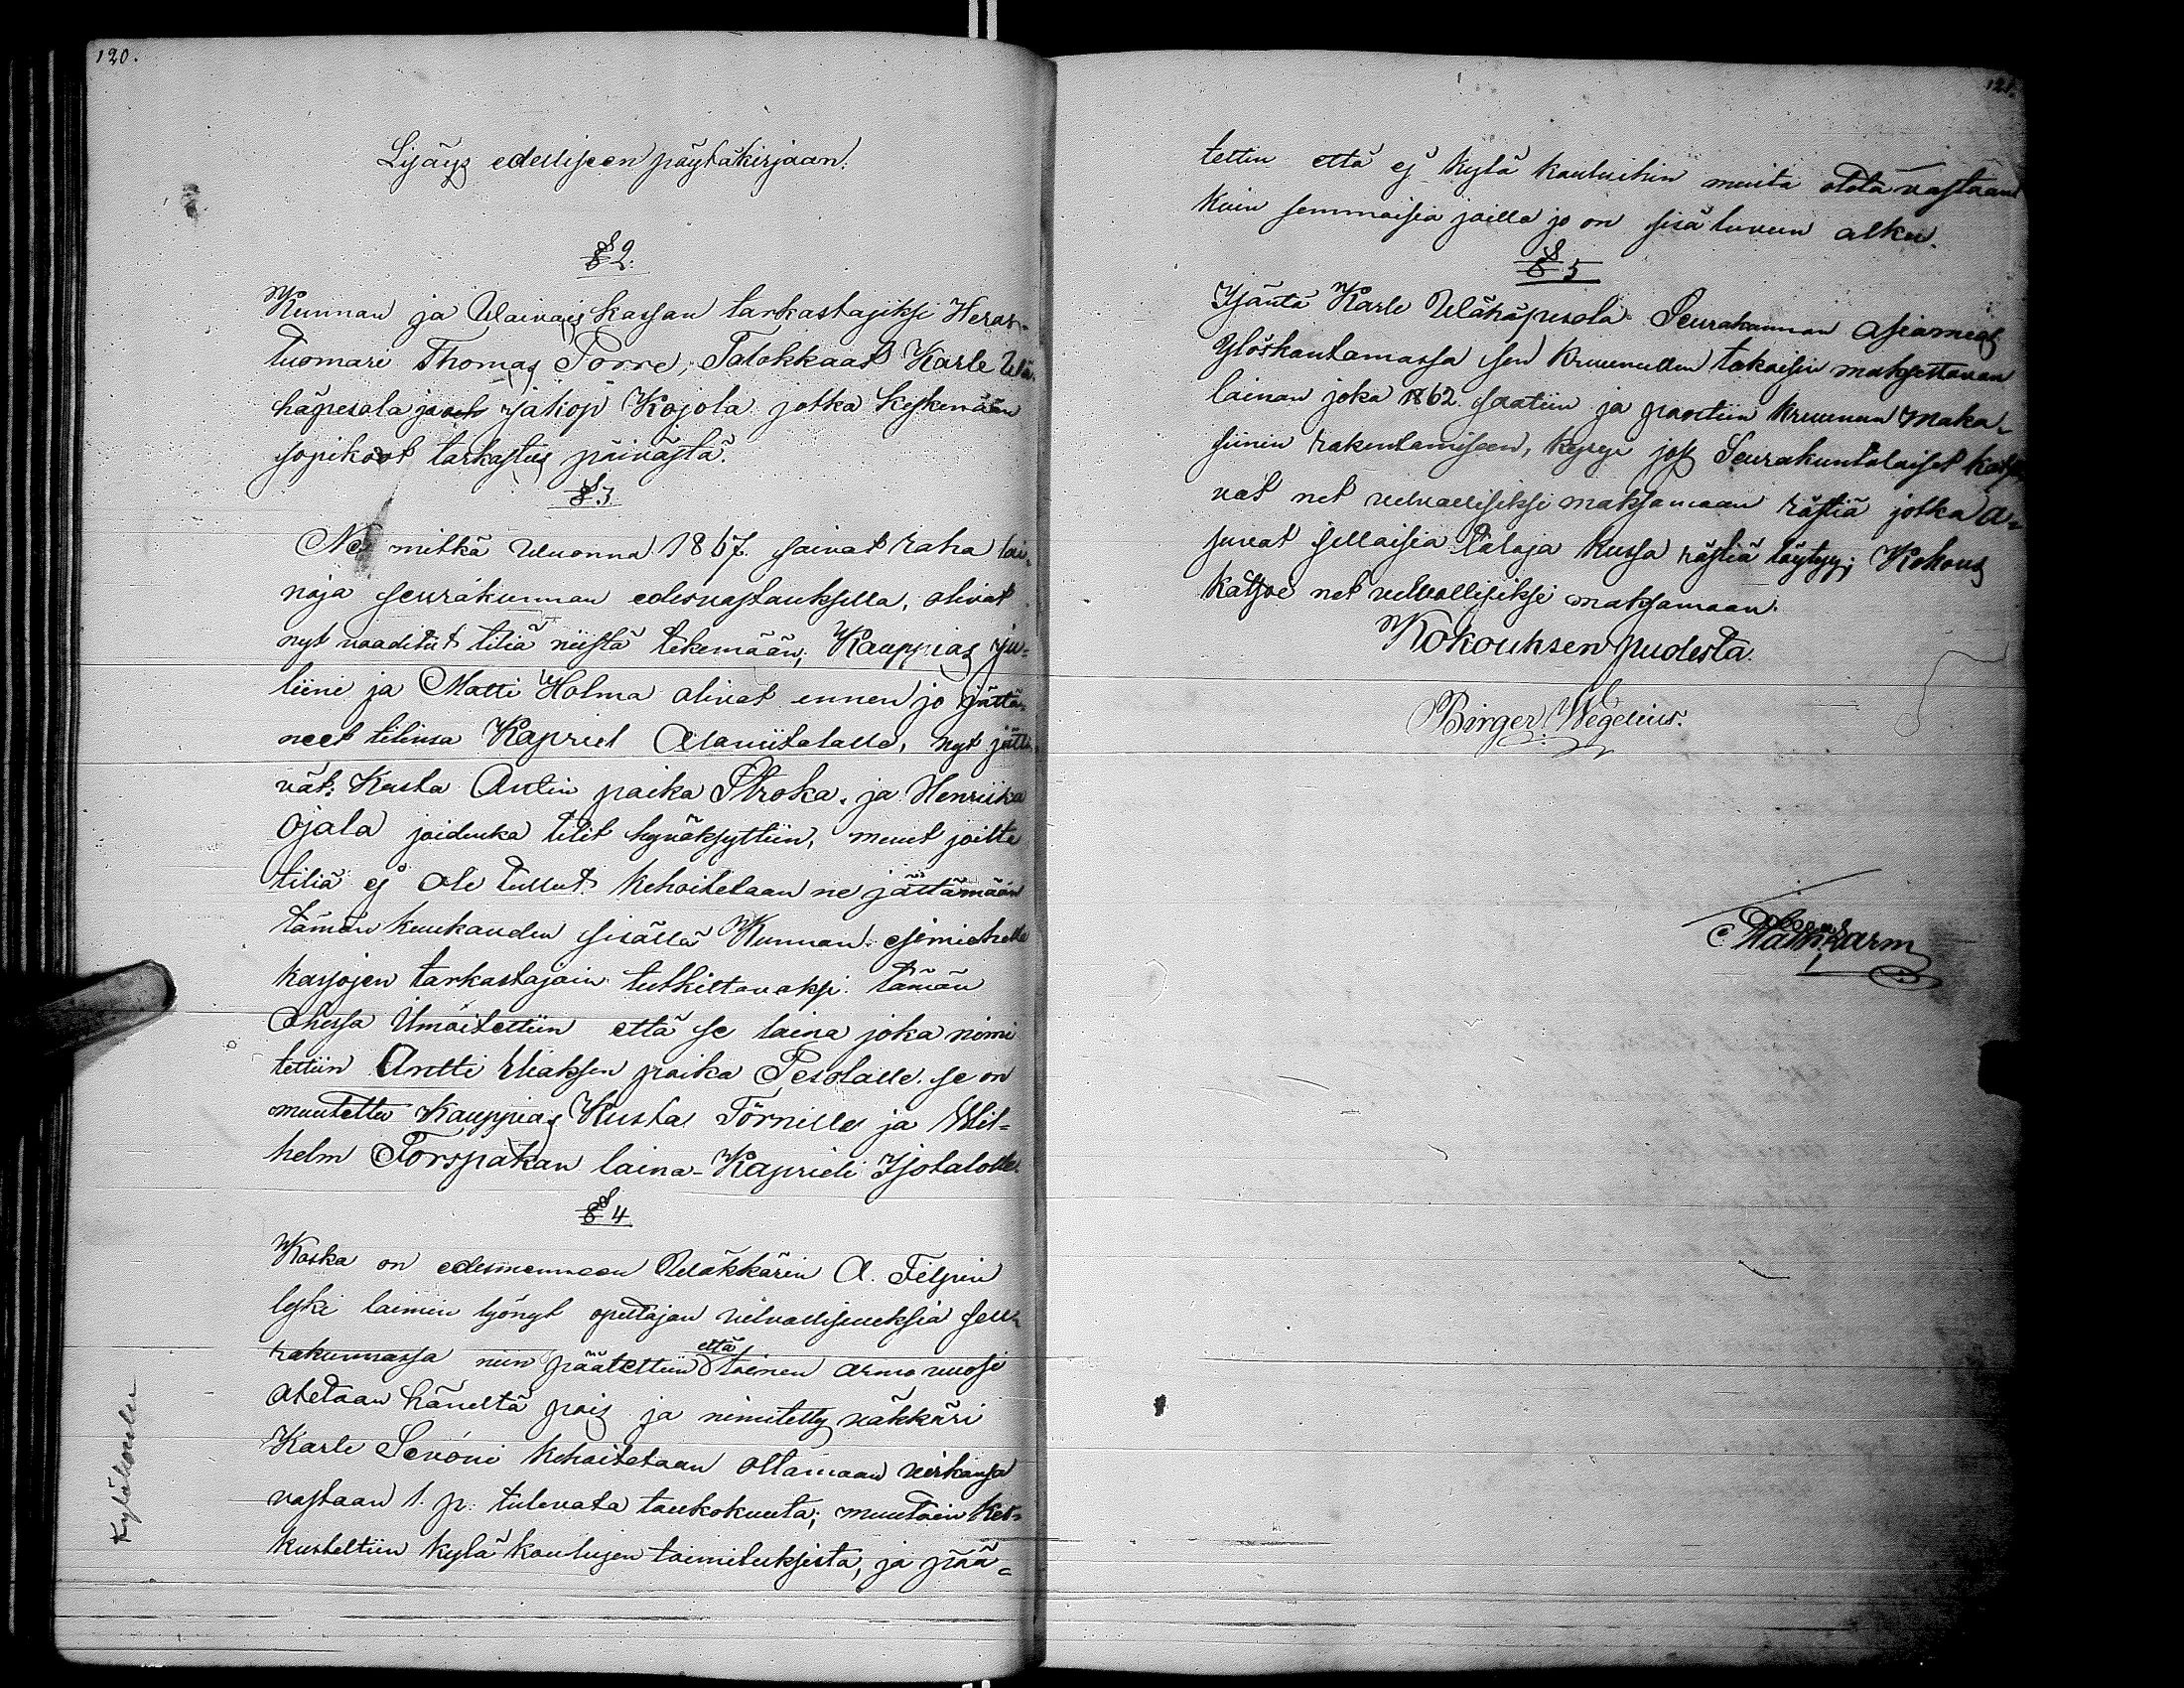 120.
Lisäys edelliseen pöytäkirjaan.
§ 2.
Kunnan ja Waivais kassan tarkastajiksi Heras-
tuomari Thomas Porre, Talokkaat Karle Wä-
häpesola ja Jakop Kojola jotka keskenään
sopikoot tarkastus päivästä.
§ 3
Ne mitkä Wuonna 1867 saivat raha lai-
noja seurakunnan edesvastauksella, olivat
nyt vaaditut tiliä niistä tekemään; Kauppias Ju-
liini ja Matti Holma olivat ennen jo jättä-
neet tilinsä Kapriel Alaviitalalle, nyt jätti-
vät: Kusta Antin poika Stroka. ja Henriika
Ojala joidenka tilit hyväksyttiin, muut joilta
tiliä ej ole tullut kehoitetaan ne jättämään
tämän kuukauden sisällä Kunnan esimiehelle
kassojen tarkastajain tutkittavaksi. tämän
ohessa ilmoitettiin että se laina joka nimi
tettiin Antti Eliaksen poika Pesolalle. se on
muutettu Kauppias Kusta Törnille ja Wil-
helm Forspakan laina Kaprieli Isotalolle.
§ 4
Koska on edesmenneen Wäkkärin A. Filpin
leski laimin lyönyt opettajan velvollisuuksia seu-
rakunnassa niin päätettiin että toinen armo vuosi
otetaan häneltä pois ja nimitetty väkkäri
Karle Savóni kehoitetaan ottamaan virkansa
vastaan 1. p. tulevata toukokuuta; muutoin kes-
kusteltiin kylä koulujen toimituksista, ja pää-
Kyläkoulu
121.
tettin että ej kylä kouluihin muita oteta vastaan
kuin semmoisia joilla jo on sisä luvun alku.
§ 5
Isäntä Karle Wähäpesola Seurakunnan asiamies
ylöskantamassa sen kruunullen takaisin maksettavan
lainan joka 1862 saatiin ja pantiin kruunun maka-
siinin rakentamiseen, kysyi jos Seurakuntalaiset katso
vat net velvollisiksi maksamaan rästiä jotka a-
suvat sellaisia taloja kussa rästiä löytyy; Kokous
katsoe net velvollisiksi maksamaan.
Kokouksen puolesta.
Birger Wegelius.